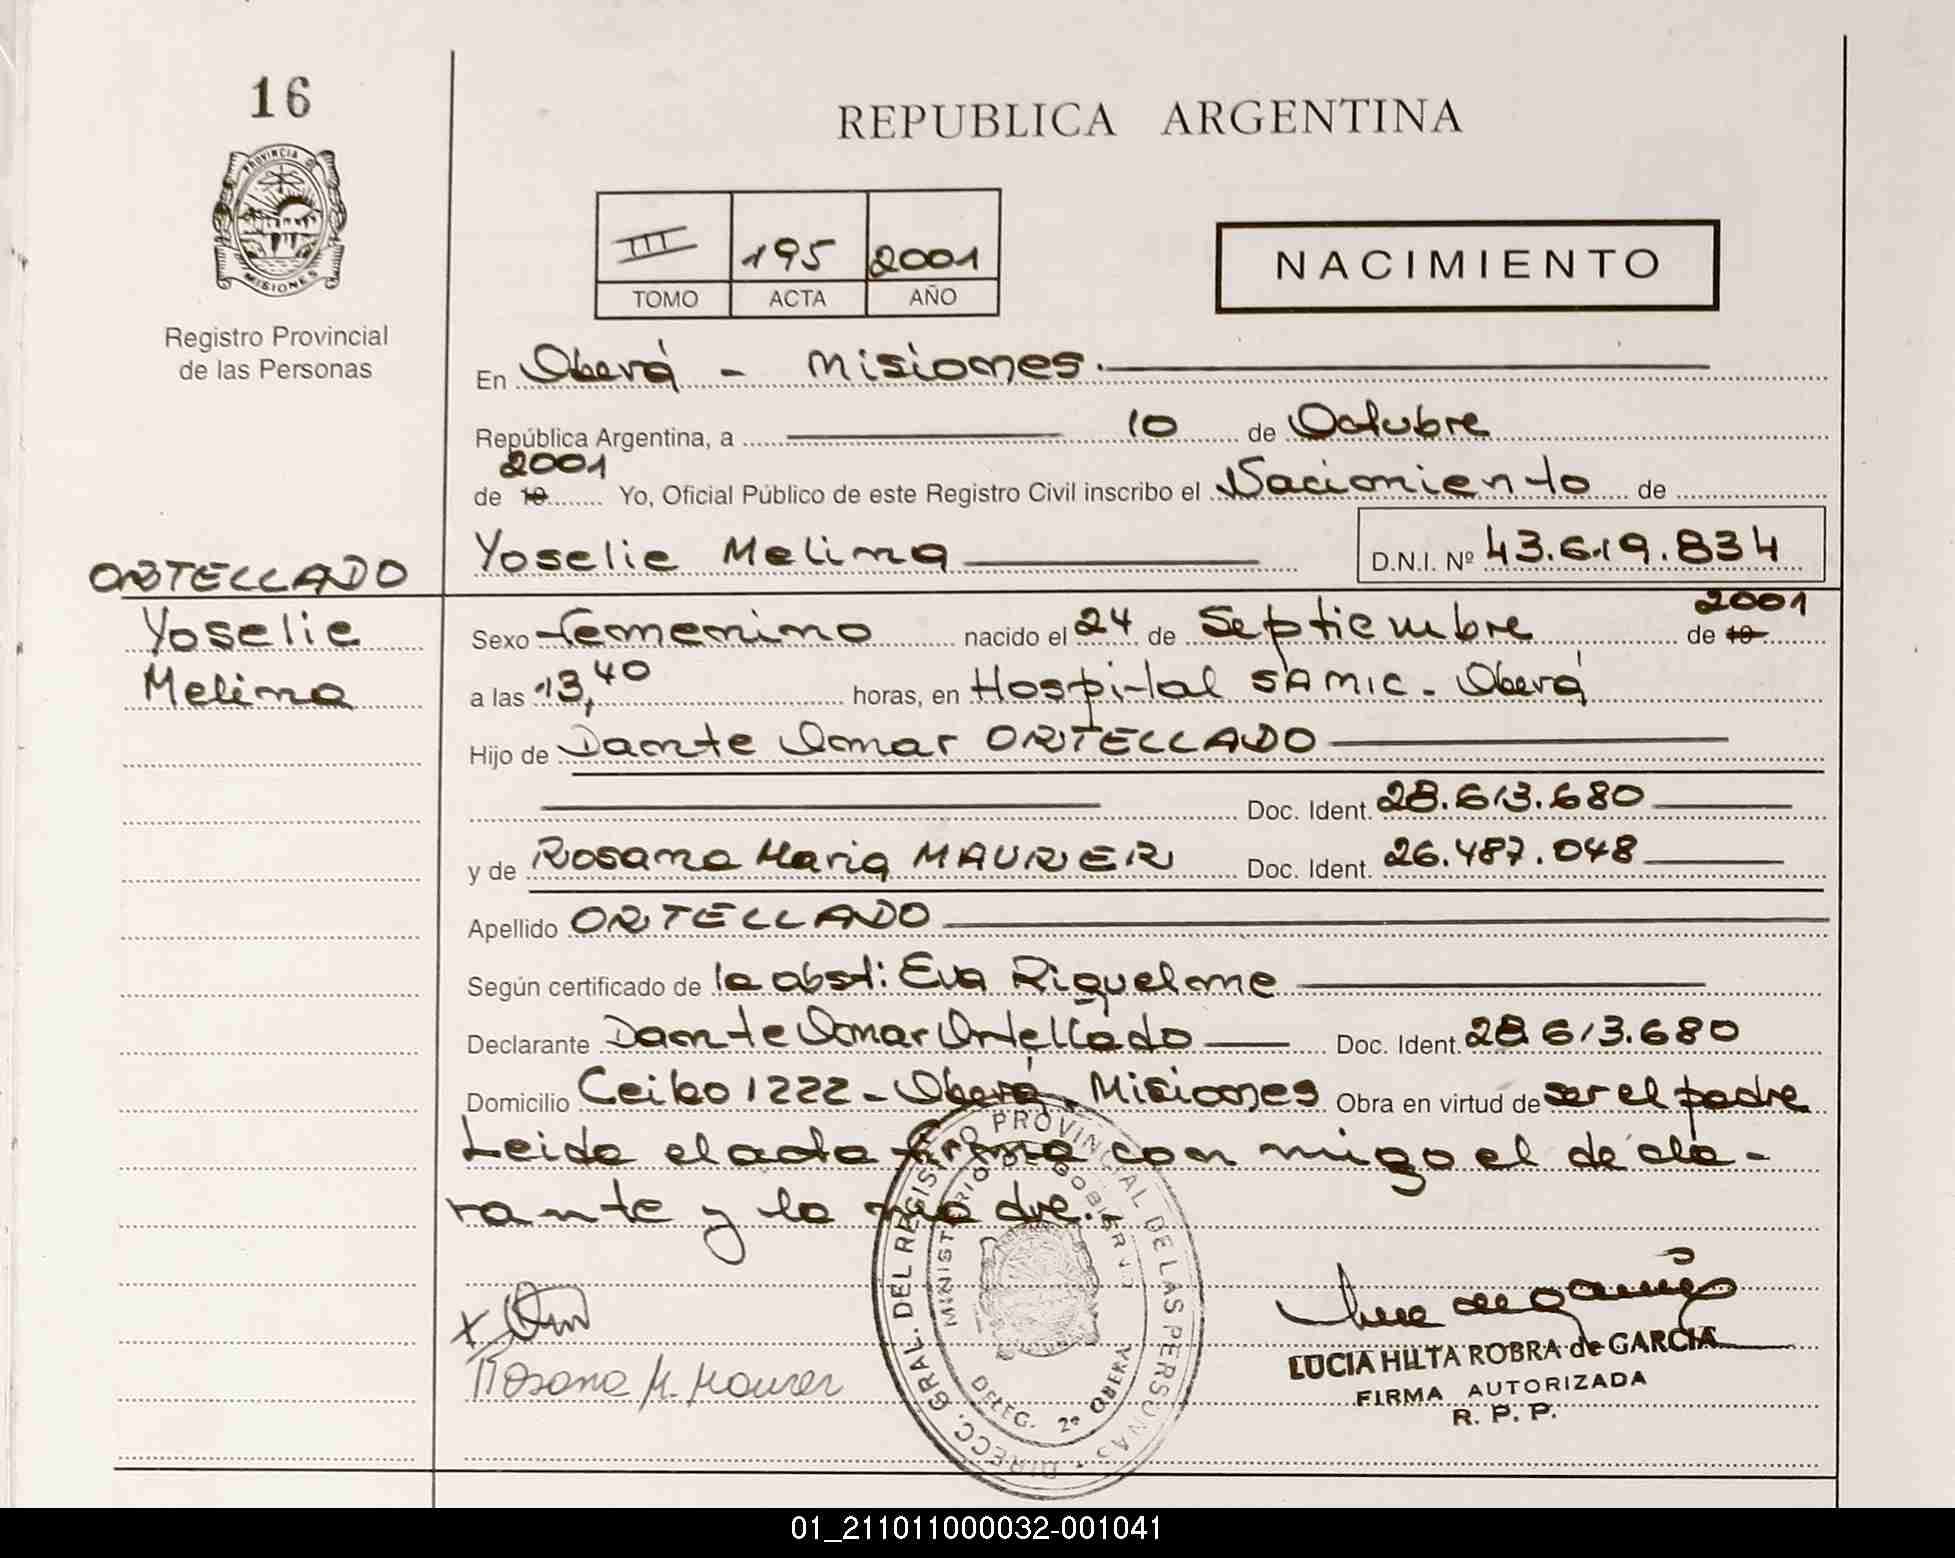 16
REPUBLICA ARGENTINA
PROVINCIA D MISIONES
Registro Provincial
de las Personas
III 195 2001
TOMO ACTA AÑO
NACIMIENTO
En Oberá - Misiones.
República Argentina, a 10 de Octubre
2001
de 19 Yo, Oficial Público de este Registro Civil inscribo el Nacimiento de
Yoselie Melina D.N.I. Nº 43.619.834
ORTELLADO
Yoselie
Melina
2001
Sexo femenino nacido el 24 de Septiembre de 19
a las 13,40 horas, en Hospital SAMIC - Oberá
Hijo de Dante Omar ORTELLADO
Doc. Ident. 28.613.680
y de Rosana Maria MAURER Doc. Ident. 26.487.048
Apellido ORTELLADO
Según certificado de la obst: Eva Riquelme
Declarante Dante Omar Ortellado Doc. Ident. 28.613.680
Domicilio Ceibo 1222 - Oberá - Misiones Obra en virtud de ser el padre
Leida el acta firma con migo el decla-
rante y la madre.
DIRECC. GRAL. DEL REGISTRO PROVINCIAL DE LAS PERSONAS
MINISTERIO DE GOBIERNO
DELEG. 2ª OBERA
Rosana M. Maurer
LUCIA HILTA ROBRA de GARCIA
FIRMA AUTORIZADA
R. P. P.
01_211011000032-001041